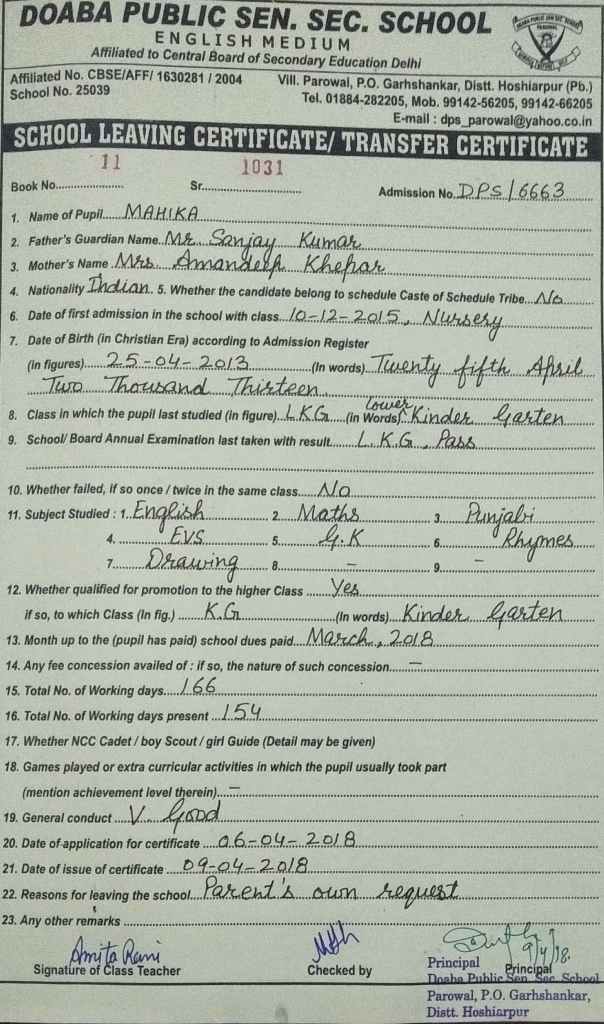 DOABA PUBLIC SEN. SEC. SCHOOL
ENGLISH MEDIUM
Affiliated to Central Board of Secondary Education Delhi
Affiliated No. CBSE/AFF/ 1630281 / 2004 Vill. Parowal, P.O. Garhshankar, Distt. Hoshiarpur (Pb.)
School No. 25039 Tel. 01884-282205, Mob. 99142-56205, 99142-66205
E-mail : dps_parowal@yahoo.co.in
SCHOOL LEAVING CERTIFICATE/ TRANSFER CERTIFICATE
Book No. 11 Sr. 1031 Admission No. DPS/6663
1. Name of Pupil MAHIKA
2. Father's Guardian Name Mr. Sanjay Kumar
3. Mother's Name Mrs. Amandeep Khepar
4. Nationality Indian 5. Whether the candidate belong to schedule Caste of Schedule Tribe No
6. Date of first admission in the school with class 10-12-2015, Nursery
7. Date of Birth (in Christian Era) according to Admission Register
(in figures) 25-04-2013 (In words) Twenty fifth April
Two Thousand Thirteen
8. Class in which the pupil last studied (in figure) LKG (in Words) Lower Kinder Garten
9. School/ Board Annual Examination last taken with result L.K.G, Pass
10. Whether failed, if so once / twice in the same class No
11. Subject Studied : 1. English 2. Maths 3. Punjabi
4. EVS 5. G.K 6. Rhymes
7. Drawing 8. – 9. –
12. Whether qualified for promotion to the higher Class Yes
if so, to which Class (In fig.) K.G (In words) Kinder Garten
13. Month up to the (pupil has paid) school dues paid March, 2018
14. Any fee concession availed of : if so, the nature of such concession. –
15. Total No. of Working days 166
16. Total No. of Working days present 154
17. Whether NCC Cadet / boy Scout / girl Guide (Detail may be given)
18. Games played or extra curricular activities in which the pupil usually took part
(mention achievement level therein) –
19. General conduct V. Good
20. Date of application for certificate 06-04-2018
21. Date of issue of certificate 09-04-2018
22. Reasons for leaving the school Parent's own request
23. Any other remarks
Amita Rani
Signature of Class Teacher Checked by
9/4/18.
Principal Principal
Doaba Public Sen. Sec. School
Parowal, P.O. Garhshankar,
Distt. Hoshiarpur